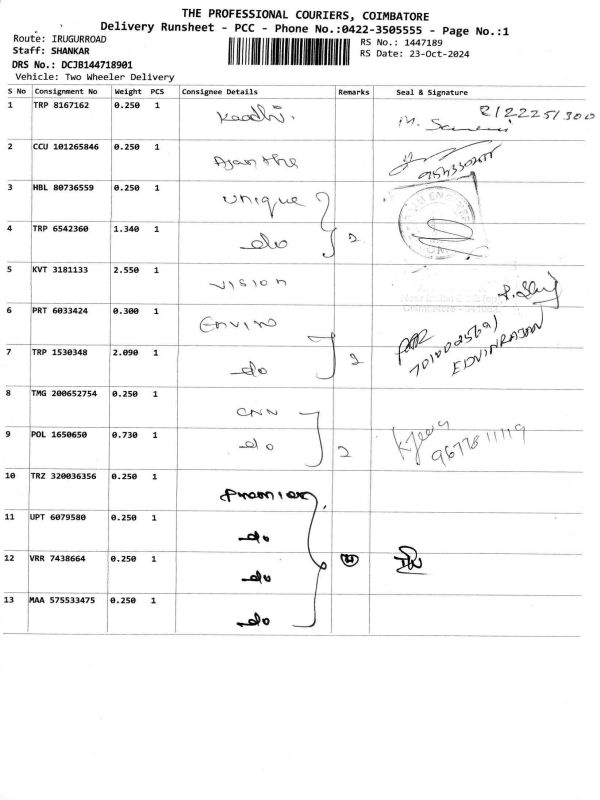 THE PROFESSIONAL COURIERS, COIMBATORE
Delivery Runsheet - PCC - Phone No.:0422-3505555 - Page No.:1
Route: IRUGURROAD RS No.: 1447189
Staff: SHANKAR RS Date: 23-Oct-2024
DRS No.: DCJB144718901
Vehicle: Two Wheeler Delivery
S No Consignment No Weight PCS Consignee Details Remarks Seal & Signature
1 TRP 8167162 0.250 1
2 CCU 101265846 0.250 1
3 HBL 80736559 0.250 1 unique
4 TRP 6542360 1.340 1 do 2
5 KVT 3181133 2.550 1 VISION
6 PRT 6033424 0.300 1
7 TRP 1530348 2.090 1 do 2
EDVINRAJAN
8 TMG 200652754 0.250 1 CNN
9 POL 1650650 0.730 1 do 2
10 TRZ 320036356 0.250 1
11 UPT 6079580 0.250 1 do
12 VRR 7438664 0.250 1 do
13 MAA 575533475 0.250 1 do